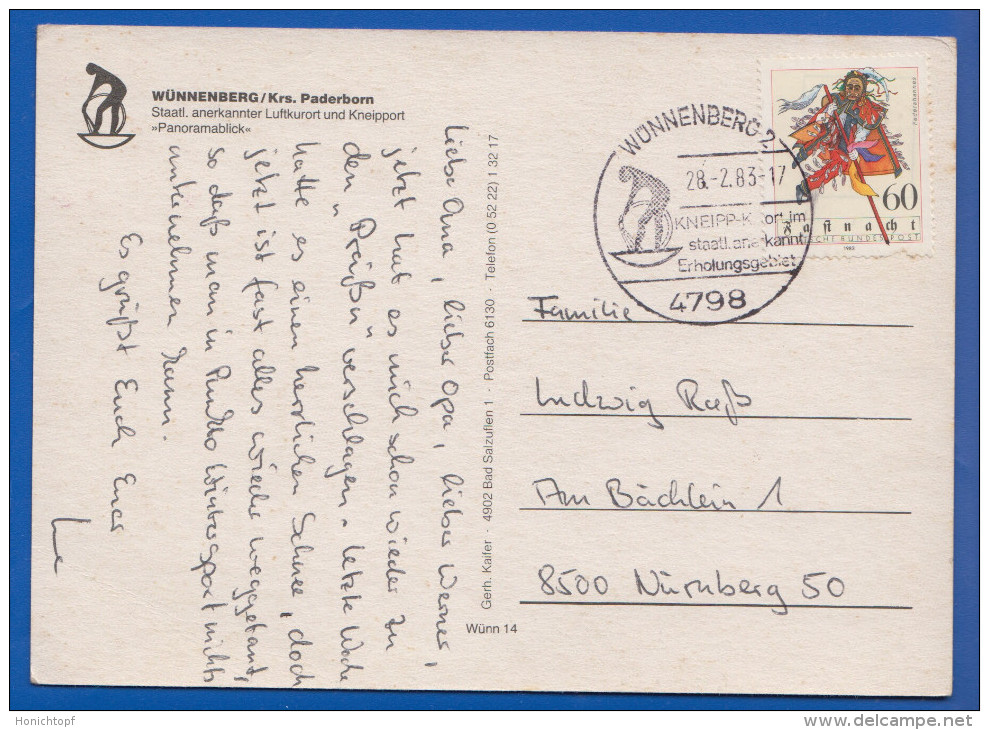 WÜNNENBERG/Krs. Paderborn
Staatl. anerkannter Luftkurort und Kneipport
»Panoramablick«
Liebe Oma, lieber Opa, lieber Werner,
jetzt hat es mich schon wieder zu
den „Preußen" verschlagen. Letzte Woche
hatte es einen herrlichen Schnee, doch
jetzt ist fast alles wieder weggetaut,
so daß man in Punkto Wintersport nichts
unternehmen kann.
Es grüßt Euch Euer
Gerh. Kaifer · 4902 Bad Salzuflen 1 · Postfach 6130 · Telefon (0 52 22) 1 32 17
Wünn 14
WÜNNENBERG 2
28.-2.83-17
KNEIPP-Kurort im
staatl. anerkannt
Erholungsgebiet
4798
Federahannes
60
Fastnacht
DEUTSCHE BUNDESPOST
1983
Familie
Ludwig Raß
Am Bächlein 1
8500 Nürnberg 50
Honichtopf
www.delcampe.net